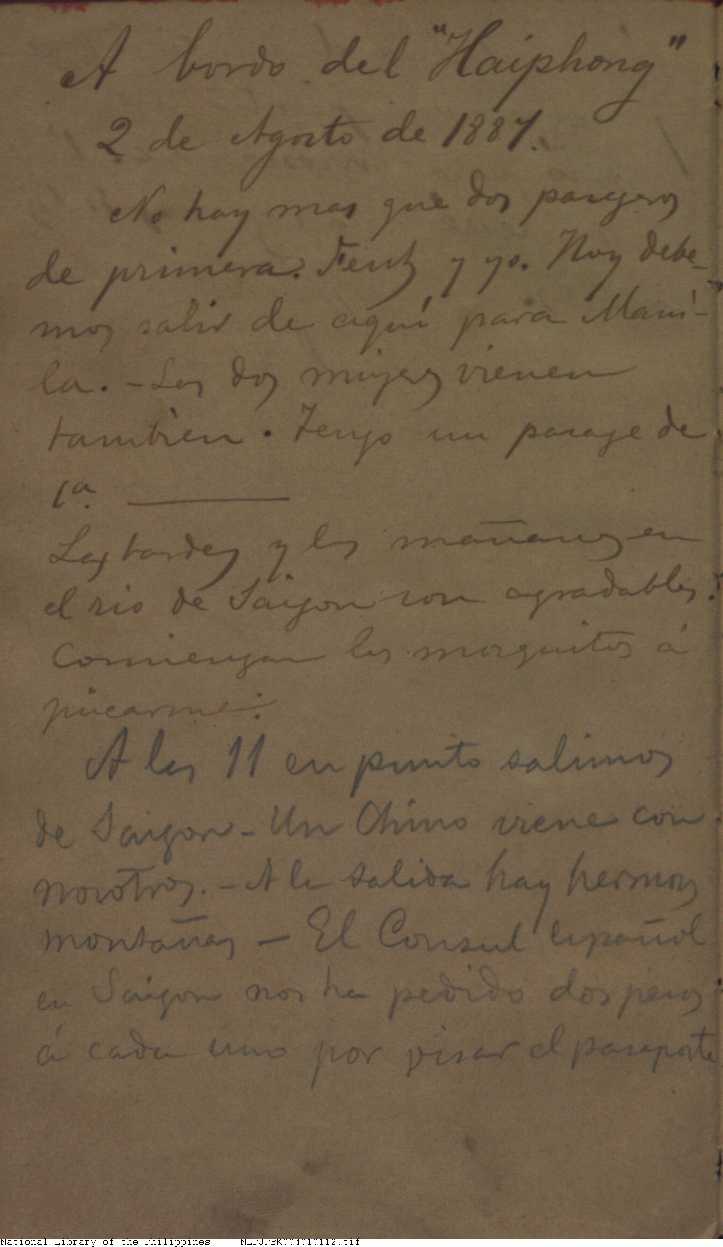 A bordo del "Haiphong"
2 de Agosto de 1887.
No hay mas que dos pasageros
de primera. Feut y yo. Hoy debe-
mos salir de aquí para Mani-
la. - Las dos mujeres vienen
tambien. Tengo un pasage de
1ª.
Las tardes y las mañanas en
el rio de Saigon son agradables.
Comienzan los mosquitos á
picarme.
A las 11 en punto salimos
de Saigon - Un Chino viene con
nosotros. - A la salida hay hermosas
montañas - El Consul español
en Saigon nos ha pedido dos pesos
á cada uno por visar el pasaporte
National Library of the Philippines